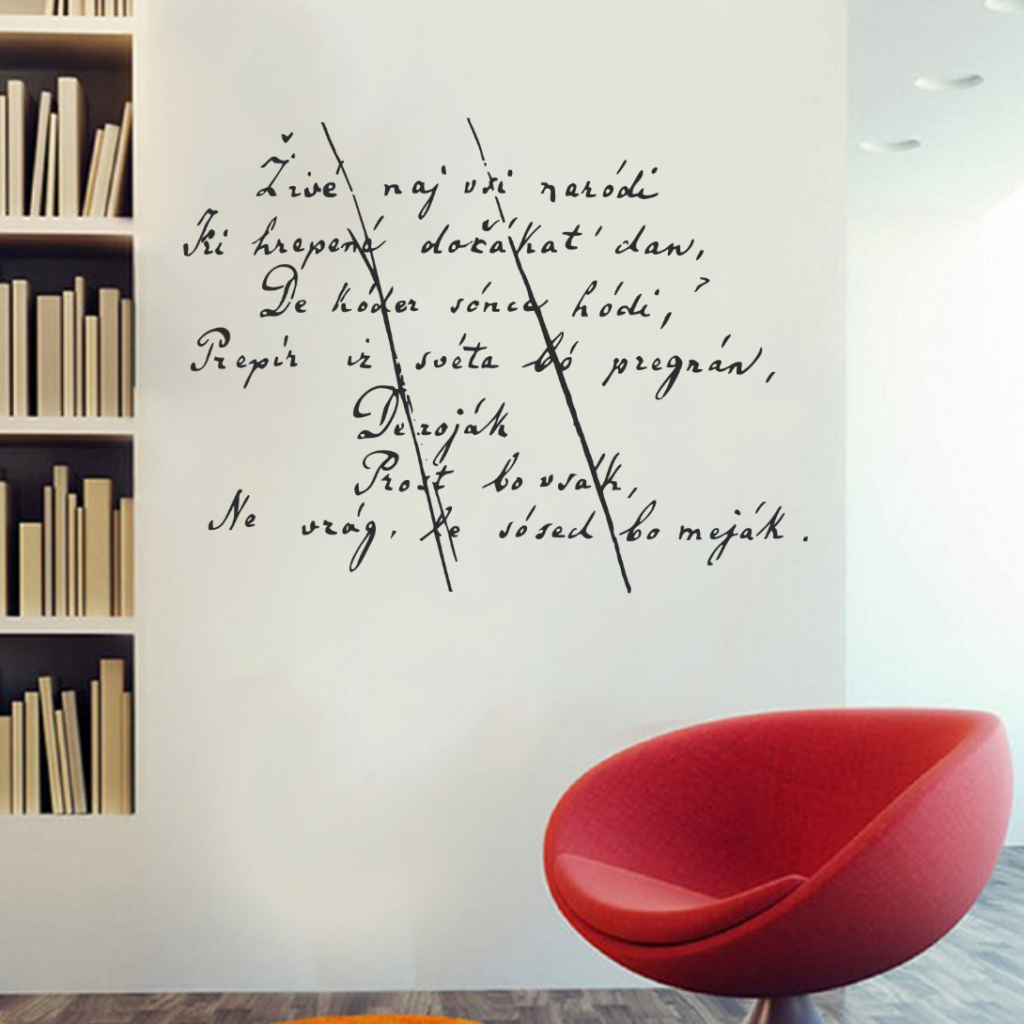 Živé naj vsi naródi
Ki hrepené dočákat' dan,
De kóder sónce hódi,
Prepír iz svéta bó pregnán,
De roják
Prost bo vsak,
Ne vrág, le sósed bo meják.